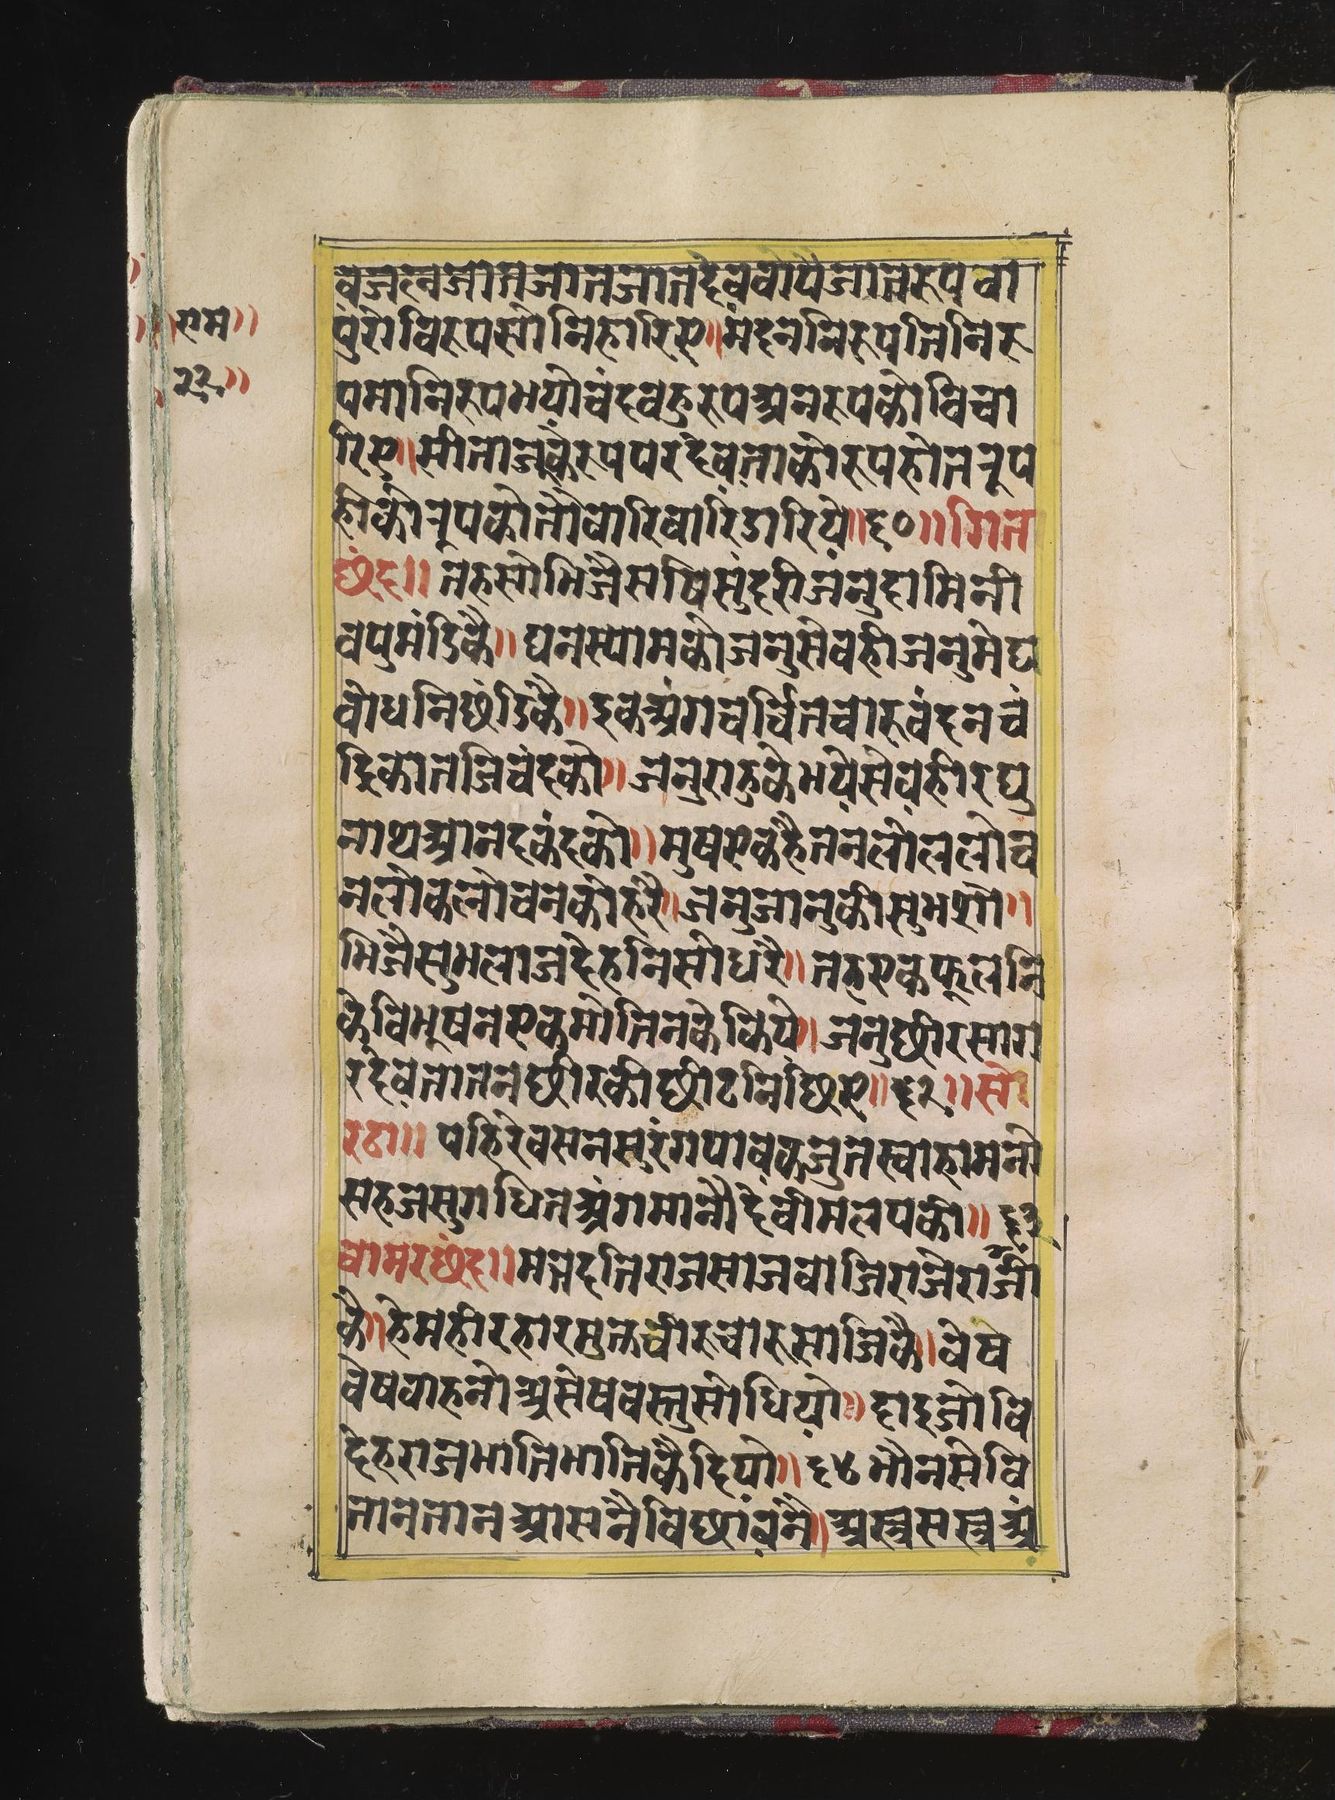 राम॥
२२॥
पुरो विरूप सो निहारिए॥ मदन निरूप निनिरू
पमा निरूप भयो चंद बहु रूप अनरूप को विचा
रिए॥ सीताजू के रूप पर देवता को रूप होत नूप
ही को नूप को तौ वारि वारि डारिये॥६०॥ गित
छंद॥ तह सोभिजै सषि सुंदरी जनु दामिनी
वपु मंडिकै॥ घनस्याम को जनु सेवही जनु मेघ
वोघनि छंडिकै॥ इक अंग चर्चित चारु चंदन चं
द्रिका तजि चंद को॥ जनु राहु के भय सेवही रघु
नाथ आनंदकंद को॥ मुष एक है नत लोल लोच
न लोक लोचन को हरै॥ जनु जानुकी सु भ सो॥
भिजै सुभ लाज देहनि सो धरै॥ तह एक फूलनि
के विभूषन एक मोतिन के किये॥ जनु छीर साग
र देवता तन छीर की छीटनि छिए॥६२॥ सो
रठा॥ पहिरे वसन सुरंग पावक जुत स्वाहा मनो
सहज सुगंधित अंग मानौ देवी मलप की॥६३
चामर छंद॥ मत्त दंतिराज साज वाजिराज राजी
कै॥ हेम हीर हार मुक्त चीर चारु साजिकै॥ वेष
वेष वाहनो असेष वस्तु सोधियो॥ दाइजो वि
देहराज भाति भाति कै दियो॥६४ भौन से वि
तान तान आसनै विछावनै॥ अस्त्र सस्त्र अं